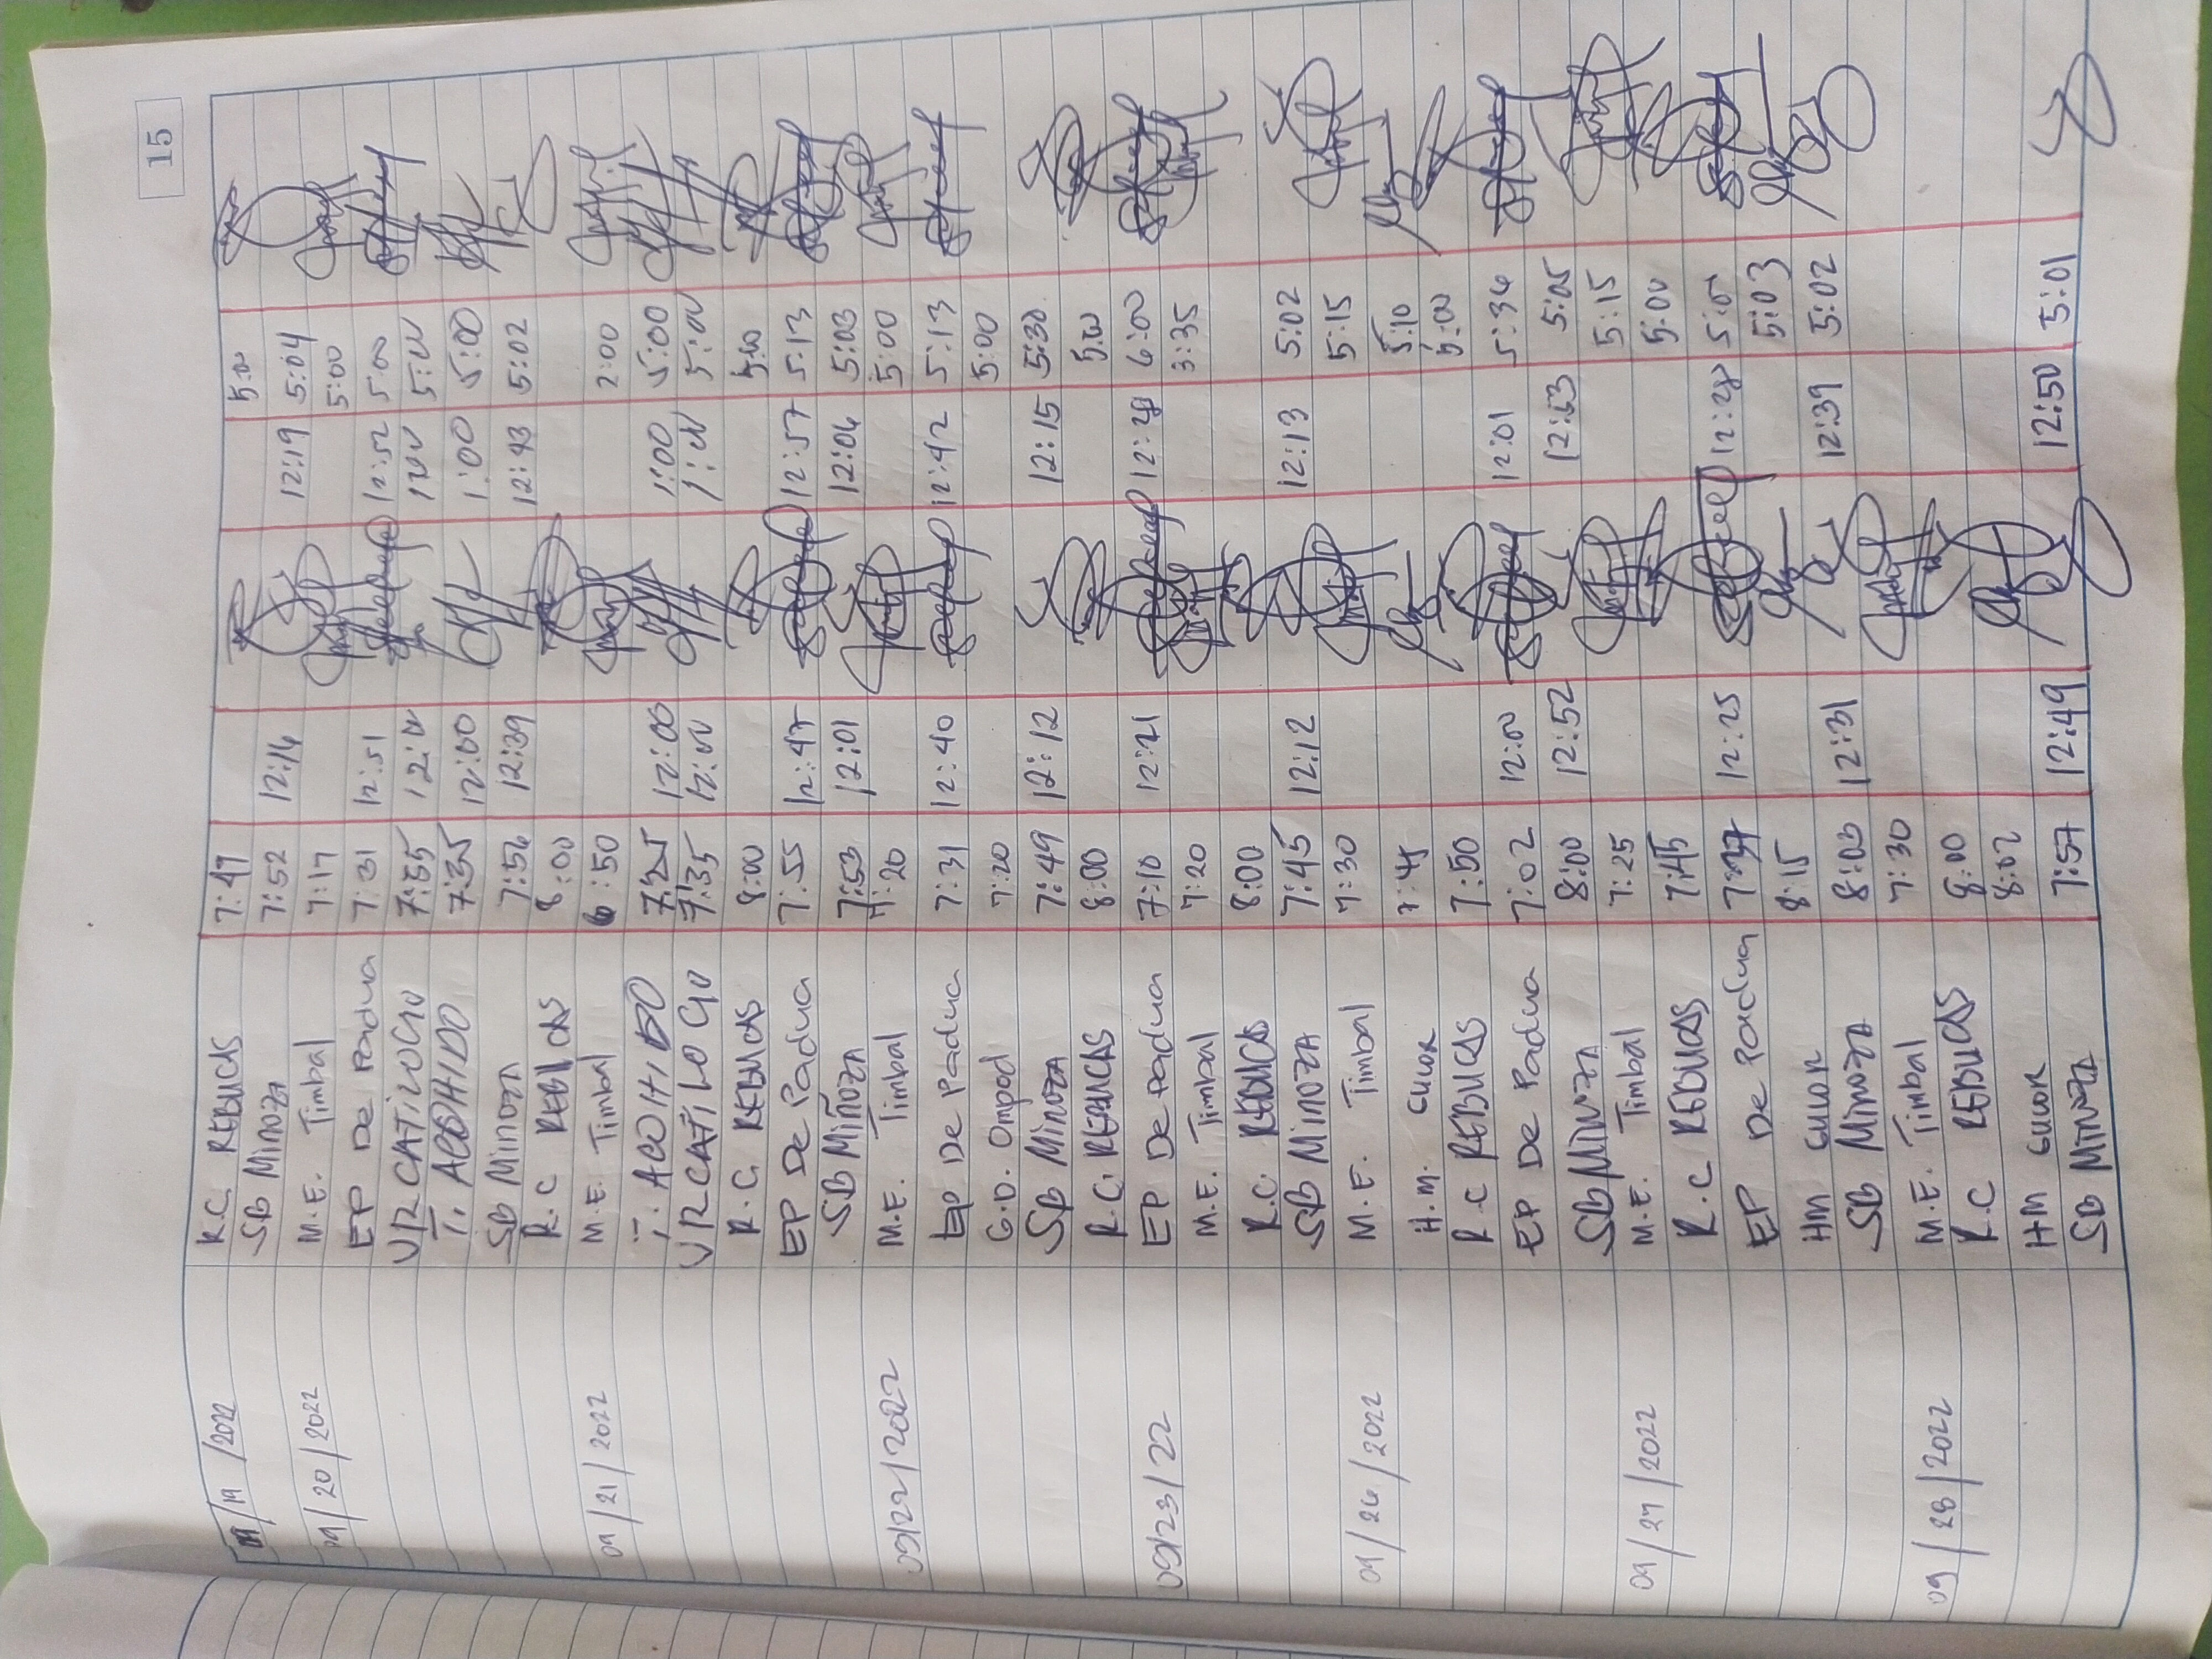 15
09/19/2022 R.C. REBUCAS 7:47 5:00
SB Minoza 7:52 12:16 12:19 5:04
09/20/2022 M.E. Timbal 7:17 5:00
EP De Padua 7:31 12:51 12:52 5:00
VR CATILOGO 7:55 12:00 5:00
T. ACOHIDO 7:35 12:00 1:00 5:00
SB Minoza 7:56 12:39 12:43 5:02
R.C REBUCAS 8:00
09/21/2022 M.E. Timbal 6:50 2:00
T. ACOHIDO 7:25 12:00 1:00 5:00
VR CATILOGO 7:35 12:00 1:00 5:00
R.C. REBUCAS 8:00 5:00
EP De Padua 7:55 12:47 12:57 5:13
SB Miñoza 7:53 12:01 12:06 5:03
09/22/2022 M.E. Timbal 7:20 5:00
EP De Padua 7:31 12:40 12:42 5:13
G.D. Ompod 7:20 5:00
SB Minoza 7:49 12:12 12:15 5:30
R.C. REBUCAS 8:00 5:00
09/23/22 EP De Padua 7:10 12:21 12:28 6:00
M.E. Timbal 7:20 3:35
R.C. REBUCAS 8:00
SB Minoza 7:45 12:12 12:13 5:02
09/26/2022 M.E. Timbal 7:30 5:15
H.M. 7:45 5:10
R.C REBUCAS 7:50 5:00
EP De Padua 7:02 12:00 12:01 5:36
SB Minoza 8:00 12:52 12:53 5:05
09/27/2022 M.E. Timbal 7:25 5:15
R.C REBUCAS 7:45 5:00
EP De Padua 7:37 12:25 12:28 5:01
HM 8:15 5:03
SB Minoza 8:03 12:31 12:39 5:02
09/28/2022 M.E. Timbal 7:30
R.C REBUCAS 8:00
HM 8:02
SB Minoza 7:57 12:49 12:50 5:01